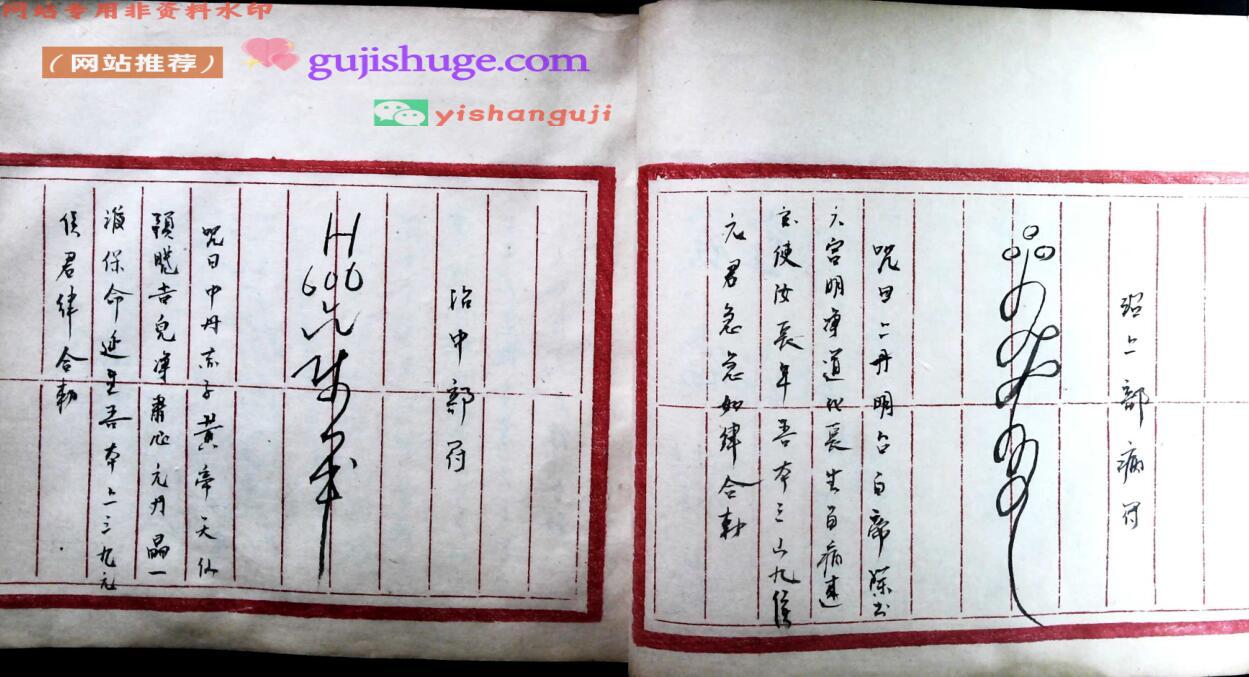 网站专用非资料水印
（网站推荐）
gujishuge.com
yishanguji
治上部病符
咒曰上丹明台白帝
六宫明净道化长生百病速
使汝长年吾本三山九侯
元君急急如律令敕
治中部符
咒曰中丹赤子黄帝天仙
净肃心元丹晶一
保命延生吾本上三九元
侯君律令敕